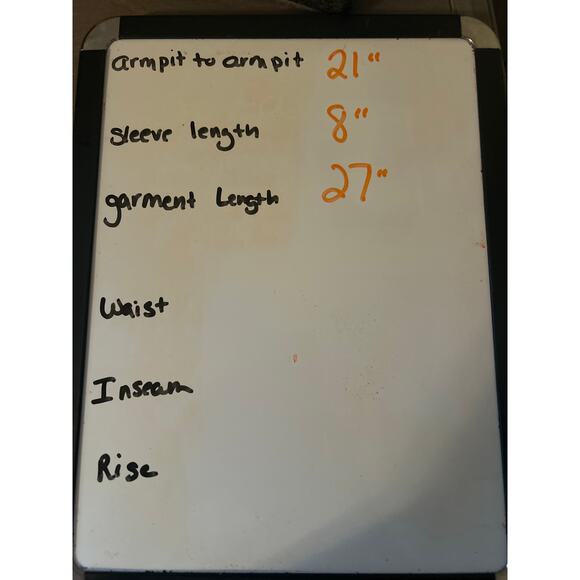 armpit to armpit 21"
sleeve length 8"
garment Length 27"
Waist
Inseam
Rise